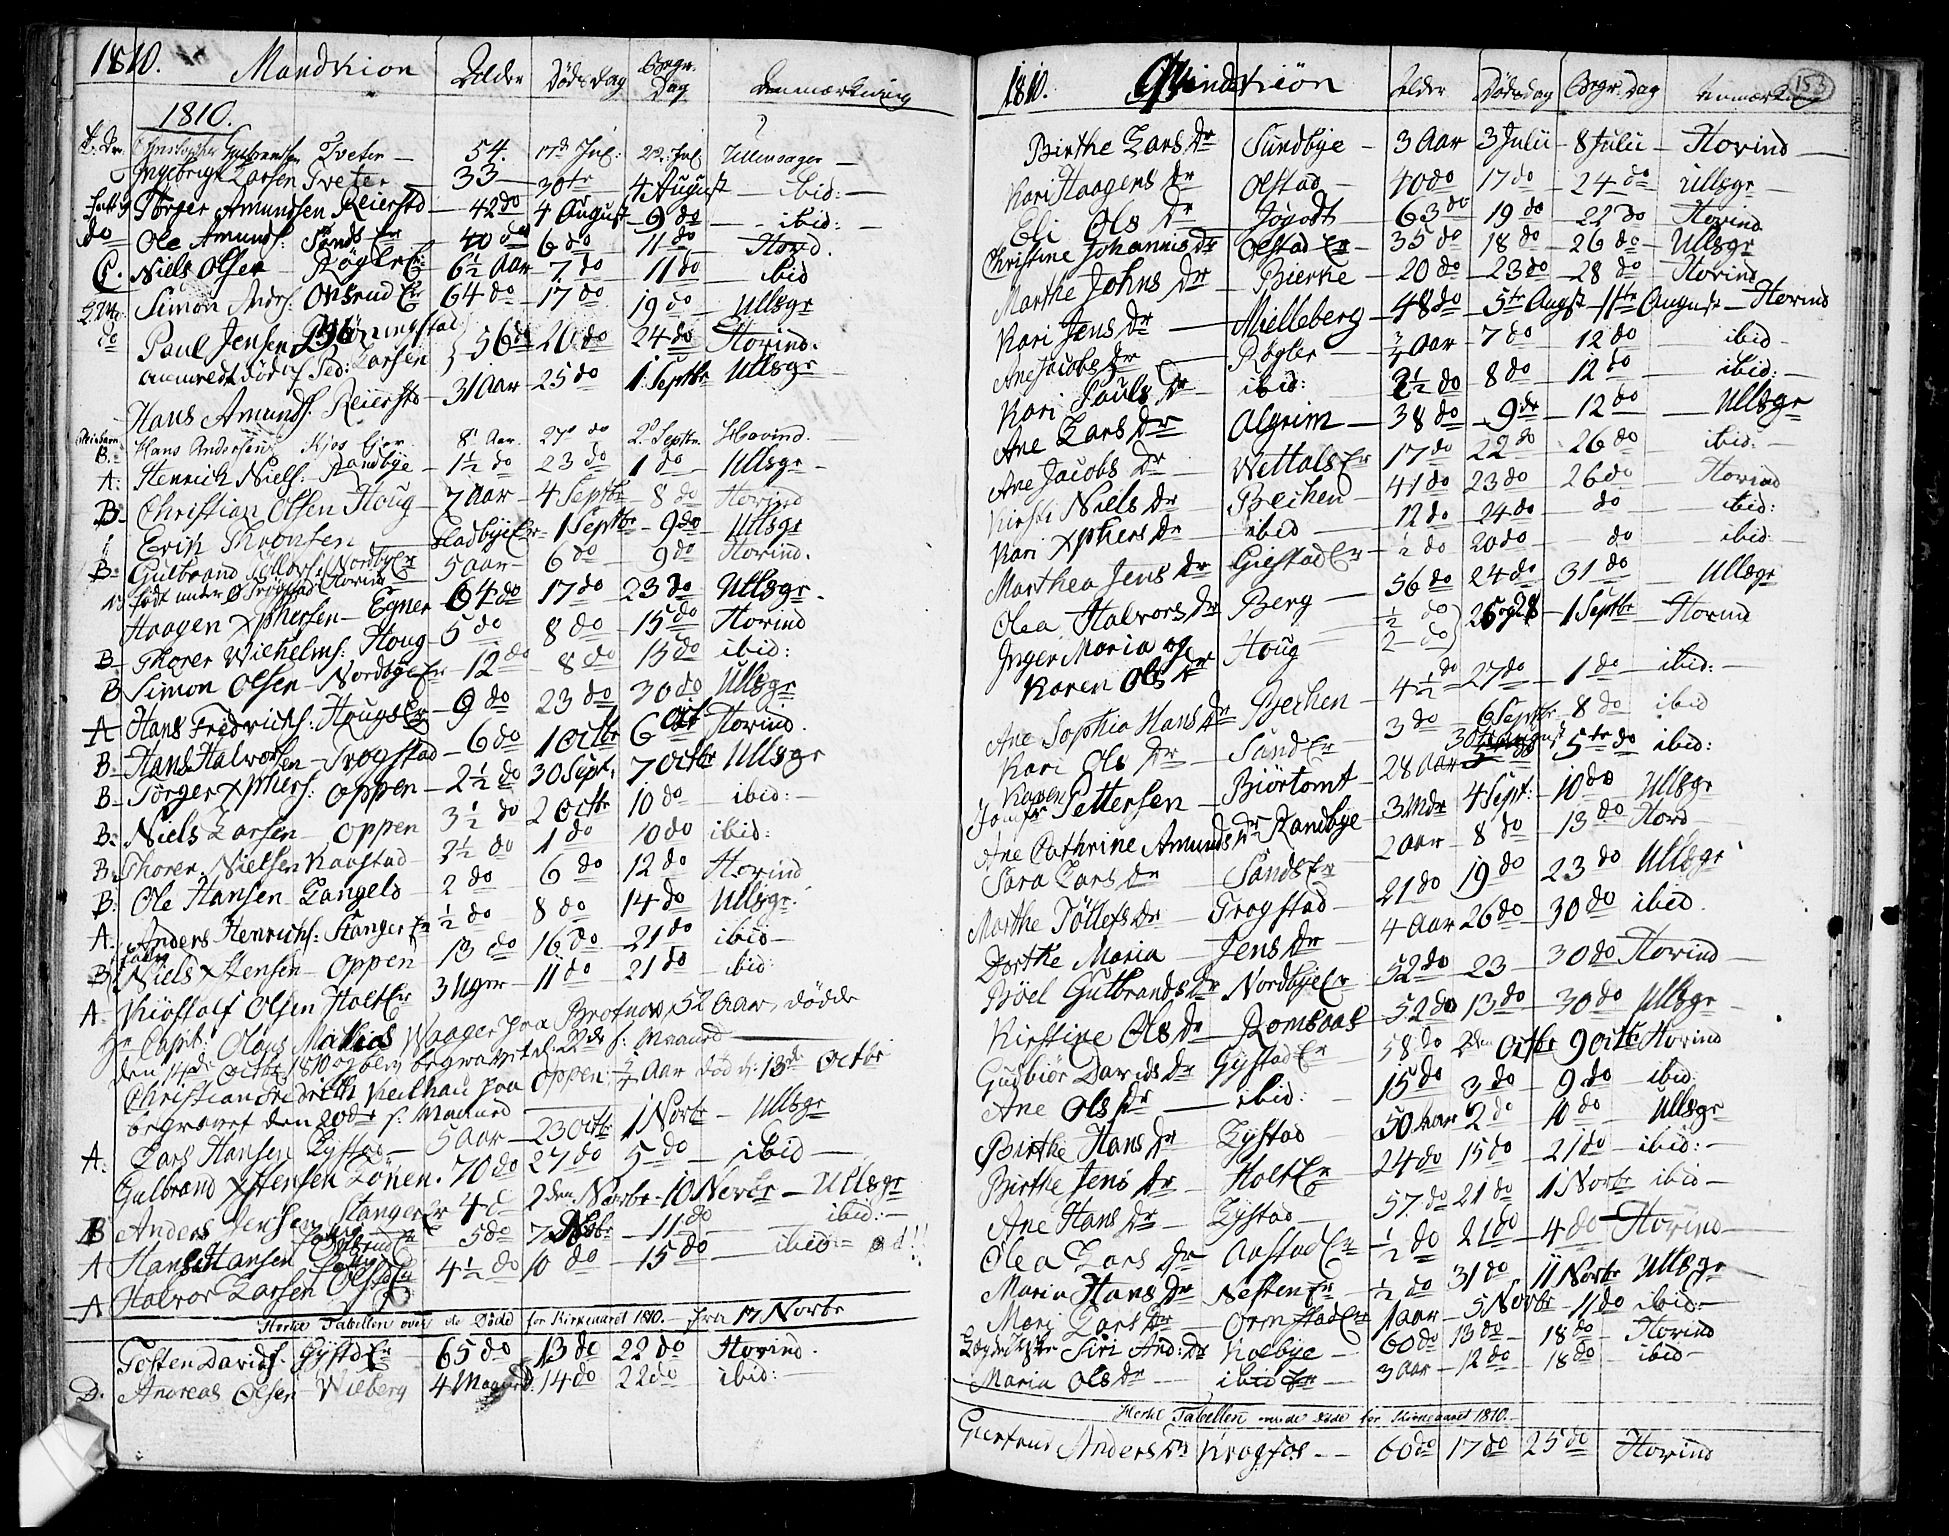 1810. Mandkiøn Alder Dødsdag Begr. Dag Anmærkning
1810.
Christopher Gulbrandsen Tveter — 54. 17de Jul: 22: Jul Ullensager —
Ingebrigt Larsen Tveter — 33 — 30te 4 August — ibid: —
Tørger Amundsen Reiersto — 42 do 4 August — 9 do — ibid: —
do Ole Amunds: Sands Er — 40 do 6 do 11 do Hovd.
C. Niels Olsen — Røgler Er 6½ Aar 7 do 11 do ibid
Simon Anders: Onsrud Er 64 do 17 do 19 do Ullsgr
do Paul Jensen
56 do 20 do 24 do Hovind.
Ped: Larsen
Hans Amunds: Reiersto — 31 Aar — 25 do 1 Septbr Ullsgr
B. Hans Andersen Kjos Ejer 8 Aar. 27 do 2 Septbr. Hovind. —
A. Henrich Niels: Randbye — 1½ do 23 do 1 do — Ullsgr —
B. Christian Olsen Houg — 7 Aar — 4 Septbr — 8 do Hovind
Erik Thronsen — Gladbye Er — 1 Septbr — 9 do — Ullsgr
B. Gulbrand Tollefs: Nordby Er 5 Aar — 6 do 9 do Hovind.
født under Trøgstad Hovind
Haagen Xphersen — Egner — 64 do 17 do 23 do Ullsgr.
B. Thorer Wilhelms: Houg 5 do 8 do 15 do Hovind
B Simon Olsen — Nordbye Er — 12 do — 8 do 15 do ibid:
A Hans Fredrichs: Hougs Er — 9 do 23 do 30 do Ullsgr
B. Hans Halvorsen — Trogstad — 6 do 1 Octbr 6 Oct Hovind.
B. Tørger Xphers: Oppen — 2½ do 30 Sept: 7 Octbr Ullsgr
B. Niels Larsen — Oppen 3½ do 2 Octbr 10 do — ibid: —
B. Thorer Nielsen Kaastad 2½ do 1 do 10 do ibid:
B. Ole Hansen — Langeld 2 do 6 do 12 do Hovind
A. Anders Henrichs: Stanger Er ½ do 8 do 14 do Ullsgr.
B. Niels Xstensen — Oppen 13 do 16 do 21 do ibid —
A. Kiøstolf Olsen Holt Er 3 Uger — 11 do 21 do ibid:
Hr Capt: Olaus Mathias Waager paa Brotnov, 52 Aar, dødde
den 14de Octbr 1810 og blev begravet d: 22de s: Maaned —
Christian Fredrich Keilhau paa Oppen ¾ Aar død d: 13de Octbr
begravet den 20de s: Maaned
A. Lars Hansen Lystad — 5 Aar — 23 Octbr 1 Novbr — Ullsgr
Gulbrand Xstensen Lønen. 70 do 27 do 5 do — ibid —
B Anders Jensen Stanger Er 4 do 2den Novbr — 10 Novbr — Ullsgr
A Hans Hansen 5 do 7 Novbr — 11 do — ibid: —
A Halvor Larsen 4½ do 10 do — 15 do — ibid:
Hertil Tabellen over de Døde for Kirkeaaret 1810. — fra 17 Novbr
Tosten Davids: Gystd Er 65 do 13 do 22 do Hovind.
D. Andreas Olsen Wilberg 4 Maaned 14 do 22 do ibid: —
1810. Qvindekiøn Alder Dødsdag Begr. Dag Anmærkning 153
Birthe Lars Dr Sundbye — 3 Aar 3 Julii — 8 Julii — Hovind —
Kari Haagens Dr Olstad — 40 do 17 do — 24 do — Ullsgr —
Eli Ols Dr — Jøgodt — 63 do 19 do — 22 do Hovind
Christine Johannis Dr Olstad Er — 35 do 18 do — 26 do — Ullsgr
Marthe Johns Dr — Bierke — 20 do — 23 do — 28 do Hovind
Kari Jens Dr — Mælleberg — 48 do — 5te Augst — 11te August — Hovind
Ane Jacobs Dr — Røgler — ¾ Aar — 7 do 12 do ibid —
Kari Pauls Dr ibid: 2½ do 8 do 12 do ibid: —
Ane Lars Dr Algrim — 38 do — 9 do — 12 do — Ullsgr
Ane Jacobs Dr Wettals Er 17 do 22 do 26 do ibid: —
Kirsti Niels Dr Bechen — 41 do 23 do 26 do Hovind
Kari Xphers Dr ibid 12 do 24 do do ibid:
Marthea Jens Dr Giestad Er — ½ do 20 do do ibid: —
Olea Halvors Dr Berg — 56 do 24 do 31 do Ullsgr
Inger Maria og ½ do
Karen Ols Dr Houg — 2 do 26 og 28 — 1 Septbr — Hovind
Ane Sophia Hans Dr Bechen — 4½ do 27 do 1 do — ibid: —
Kari Ols Dr — Sund Er 3 do 6 Septbr — 8 do ibid
Karen 30 August
Jomfr Pettersen — Biörtomt — 28 Aar 5te do ibid:
Ane Cathrine Amunds Dr Randbye — 3 Mdr 4 Sept: 10 do Ullsgr
Sara Lars Dr — Sands Er 2 Aar 8 do — 13 do Hovd
Marthe Tøllefs Dr — Trogstad — 21 do 19 do 23 do Ullsgr
Dorthe Maria — Jens Dr — 4 Aar 26 do 30 do ibid.
Bøel Gulbrands Dr Nordbye Er — 52 do — 23 — 30 do Hovind —
Kirstine Ols Dr — Romsaas — 52 do 13 do 30 do Ullsgr —
Gudbiør Davids Dr Gystad Er — 58 do 2den Octbr 9 Octbr Hovind
Ane Ols Dr — ibid: — 15 do 3 do 9 do — ibid:
Birthe Hans Dr Lystad — 50 Aar 2 do 10 do Ullsgr
Birthe Jens Dr — Holt Er 24 do 15 do — 21 do ibid: —
Ane Hans Dr — Lystad — 57. do 21 do 1 Novbr ibid —
Olea Lars Dr — Aastad Er — ½ do 21 do — 4 do — Hovind —
Maria Hans Dr — Nesten Er — ½ do 31 do 11 Novbr Ullsgr —
Mari Lars Dr — Ormstad Er — 1 Aar — 5 Novbr — 11 do ibid: —
Siri And: Dr — Kolbye — 60 do 13 do — 18 do Hovind
Maria Ols Dr — ibid Er — 3 Aar — 12 do — 18 do ibid —
Hertil Tabellen over de Døde for Kirkeaaret 1810. —
Giertrud Anders Dr Krogfos — — 60 do 17 do 25 do — Hovind